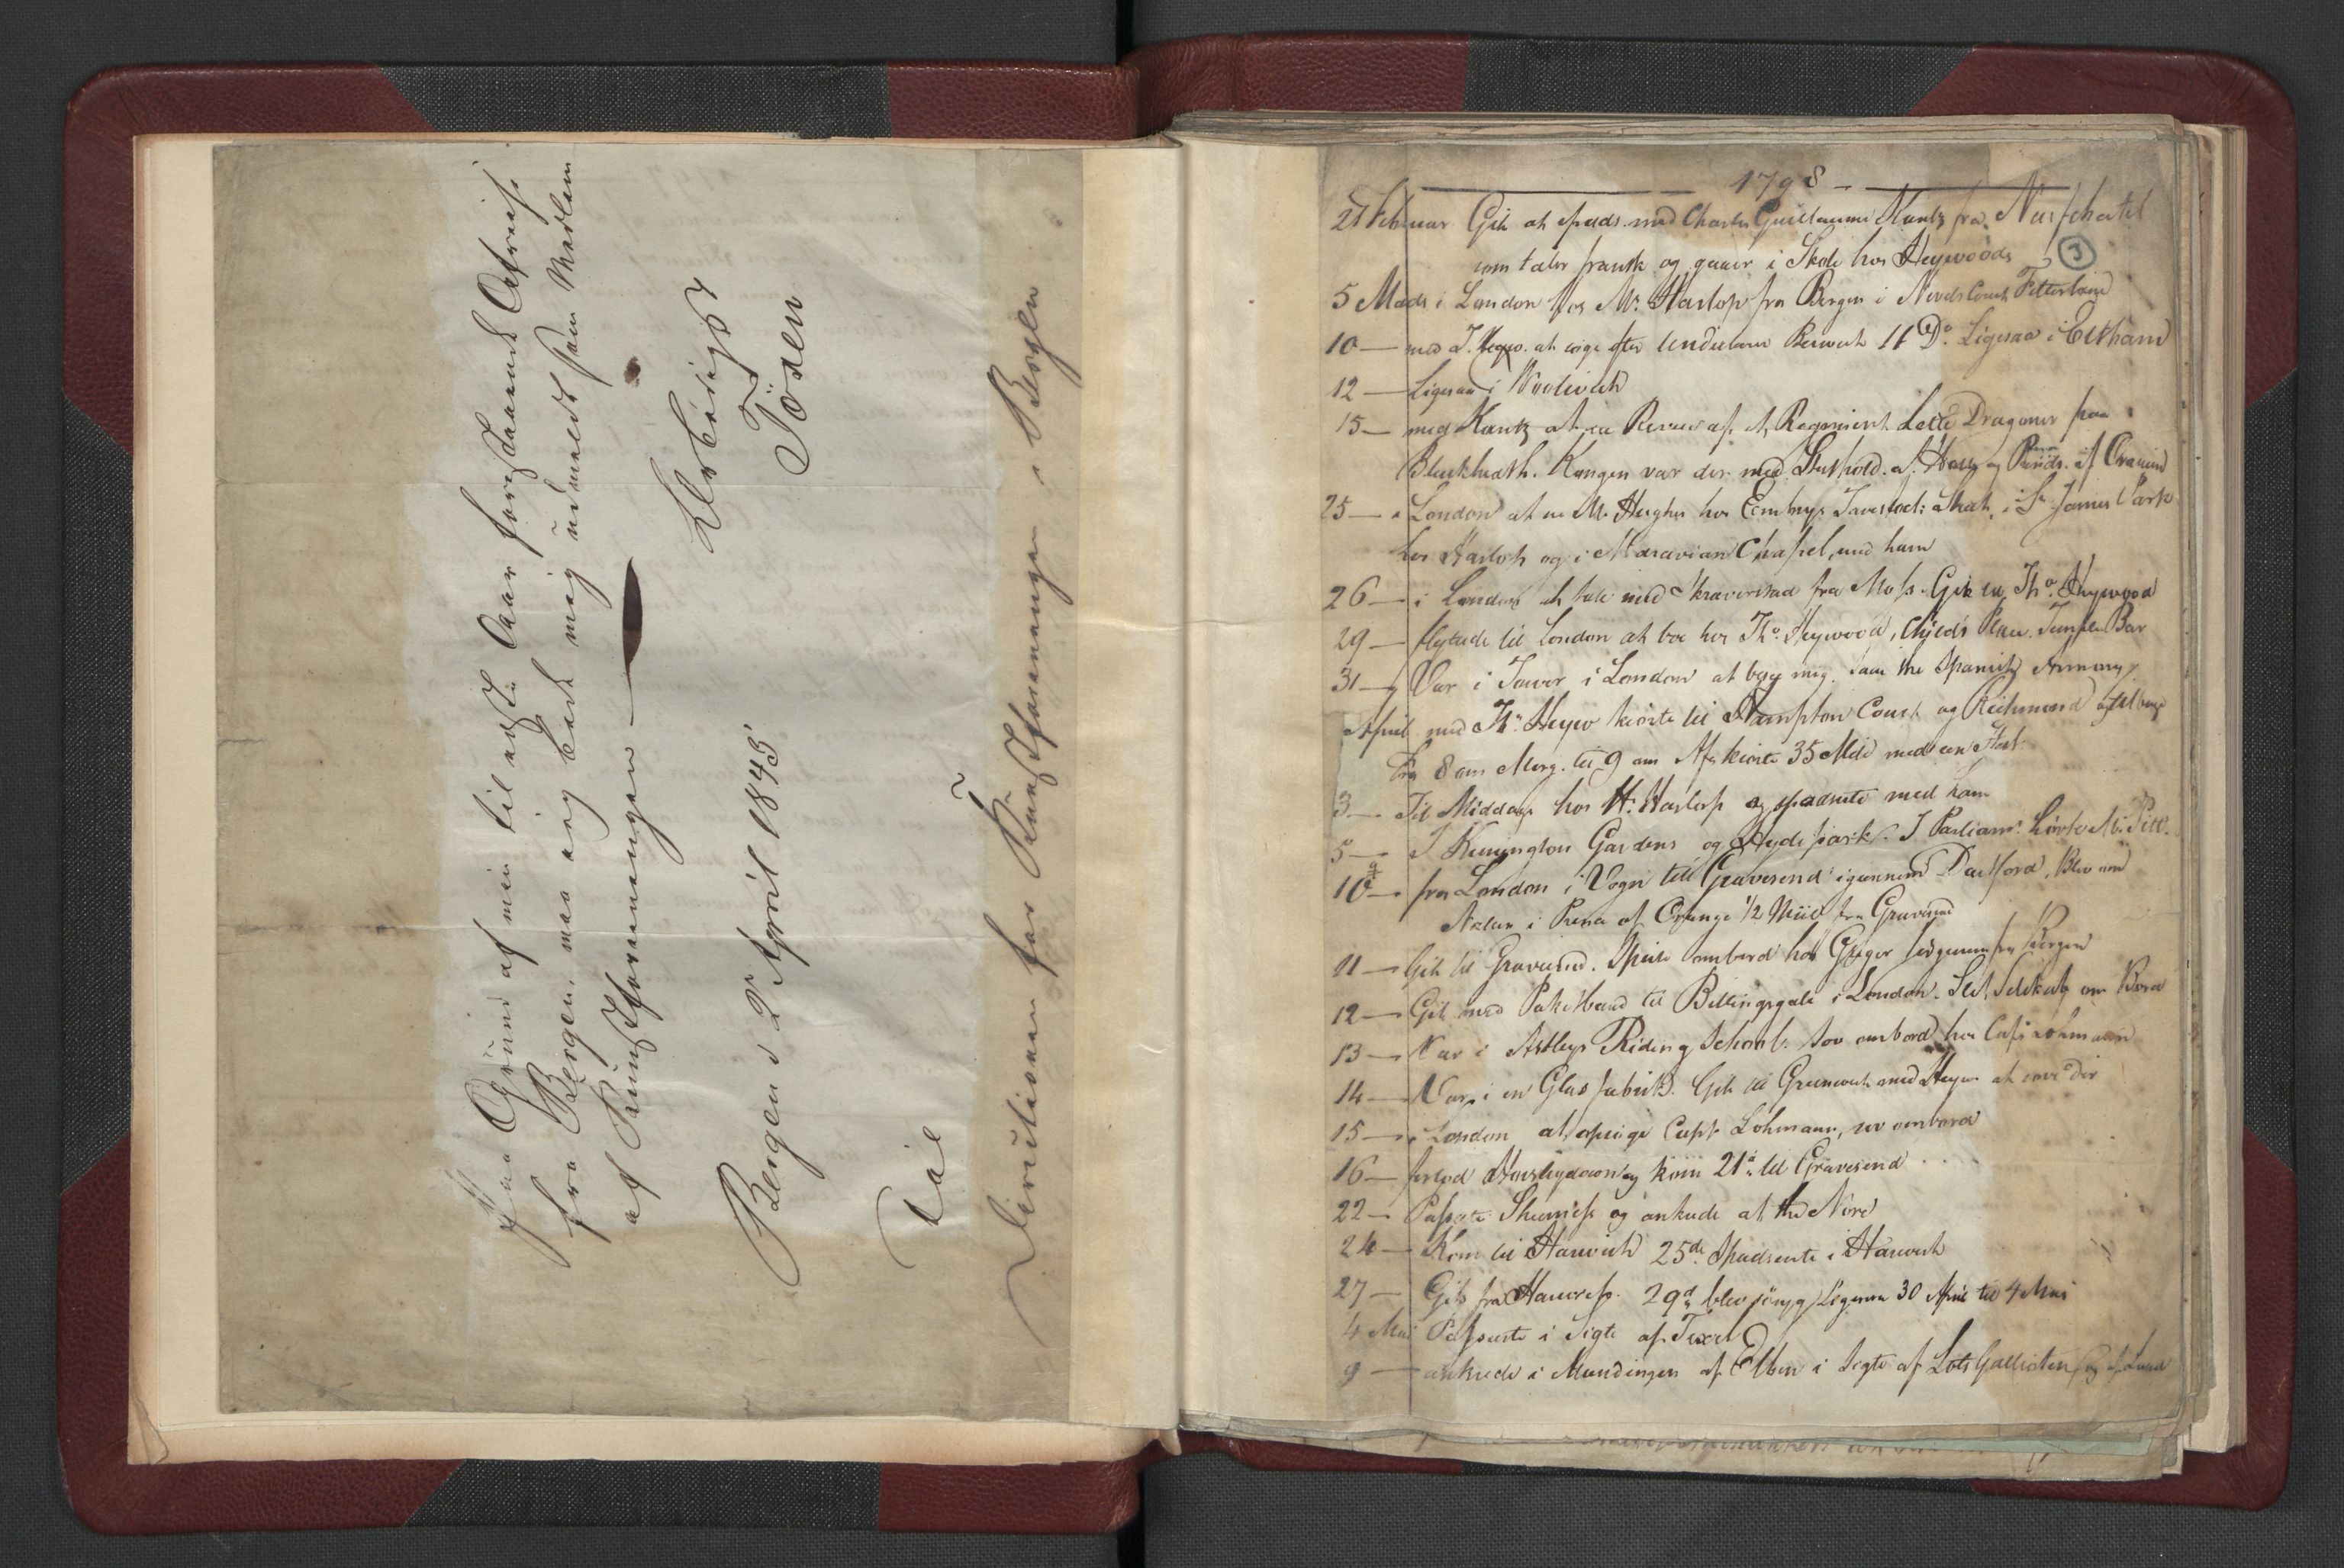 Paa Grund af min til næste Aar forestaaende Afreise
fra Bergen, maa jeg bede mig udmeldt som Medlem
af Kunstforeningen
Bergen d 2 April 1845
Ærbødigst
Töen
Til
Directionen for Kunstforeningen i Bergen
1798
27 Februar Gik at spads. med Charles Guillaume Kantz fra Neufchatel
som taler fransk og gaaer i Skole hos Heywoods
3
5 Marts i London hos Mr. Harlop fra Bergen i Nevels Court Fetterlane
10 — med J. Heyw. at søge efter Berwich 11 Do. Ligesaa i Eltham
12 — Ligesaa i Woolwich
15 — med Kantz at see Revue af et Regiment Lette Dragoner paa
Blackheath. Kongen var der med Stathold. af Holl. og Prinds. af Oranien
25 — i London at see Mr. Hughes hos Tavestock Street, i St. James Park
hos Harloh og i Moravian Chapel med ham
26 — i London at tale med fra Moss. Gik til Tho. Heywood
29 — flyttede til London at boe hos Tho. Heywood, Childs Place Temple Bar
31 — Var i Tower i London at bese mig. Saae the Spanish Armory
April med Th. Heyw kiørte til Hampton Court og Richmond og tilbage
Fra 8 om Morg. til 9 om Aft. kiørte 35 Mile med een Hest
3 — Til Middag hos Hr. Harlop og spadserte med ham
5 — I Kensington Gardens og Hyde park. I Parliamt. hørte Mr. Pitt.
10 — fra London i Vogn till Gravesend igiennem Dartford, Blev om
Natten i Prince of Orange 1/2 Miil fra Gravesend
11 — Gik til Gravesend. Spiste ombord hos Greger Jørgensen fra Bergen
12 — Gik med Paketbaad til Billingsgate i London. Slet Selskab om Bord
13 — Var i Astleys Riding School. Sov ombord hos Capt Lohmann
14 — Var i en Glas fabrik. Gik til Greenwich med Heyw. at sove der
15 — i London at opsøge Capt. Lohmann, sov ombord
16 — forlod Horslydown og kom 21de til Gravesend
22 — Passerte Sheerness og ankrede at the Nore
24 — Kom til Harwich 25de Spadserte i Harwich
27 — Gik fra Harwich. 29de blev søesyg Ligesaa 30 April til 4 Mai
4 Mai Passerte i Sigte af Texel
9 — ankrede i Mundingen af Elben i Sigte af Lots Gallioten og af Land